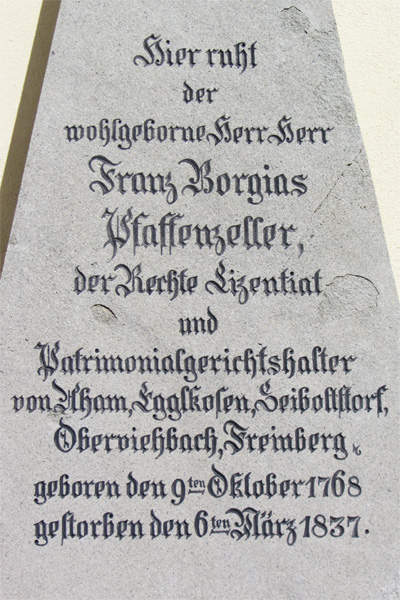 Hier ruht
der
wohlgeborne Herr Herr
Franz Borgias
Pfaffenzeller,
der Rechte Lizentiat
und
Patrimonialgerichtshalter
von Aham, Egglkofen, Seiboltstorf,
Oberviehbach, Freinberg ꝛc
geboren den 9ten Oktober 1768
gestorben den 6ten März 1837.